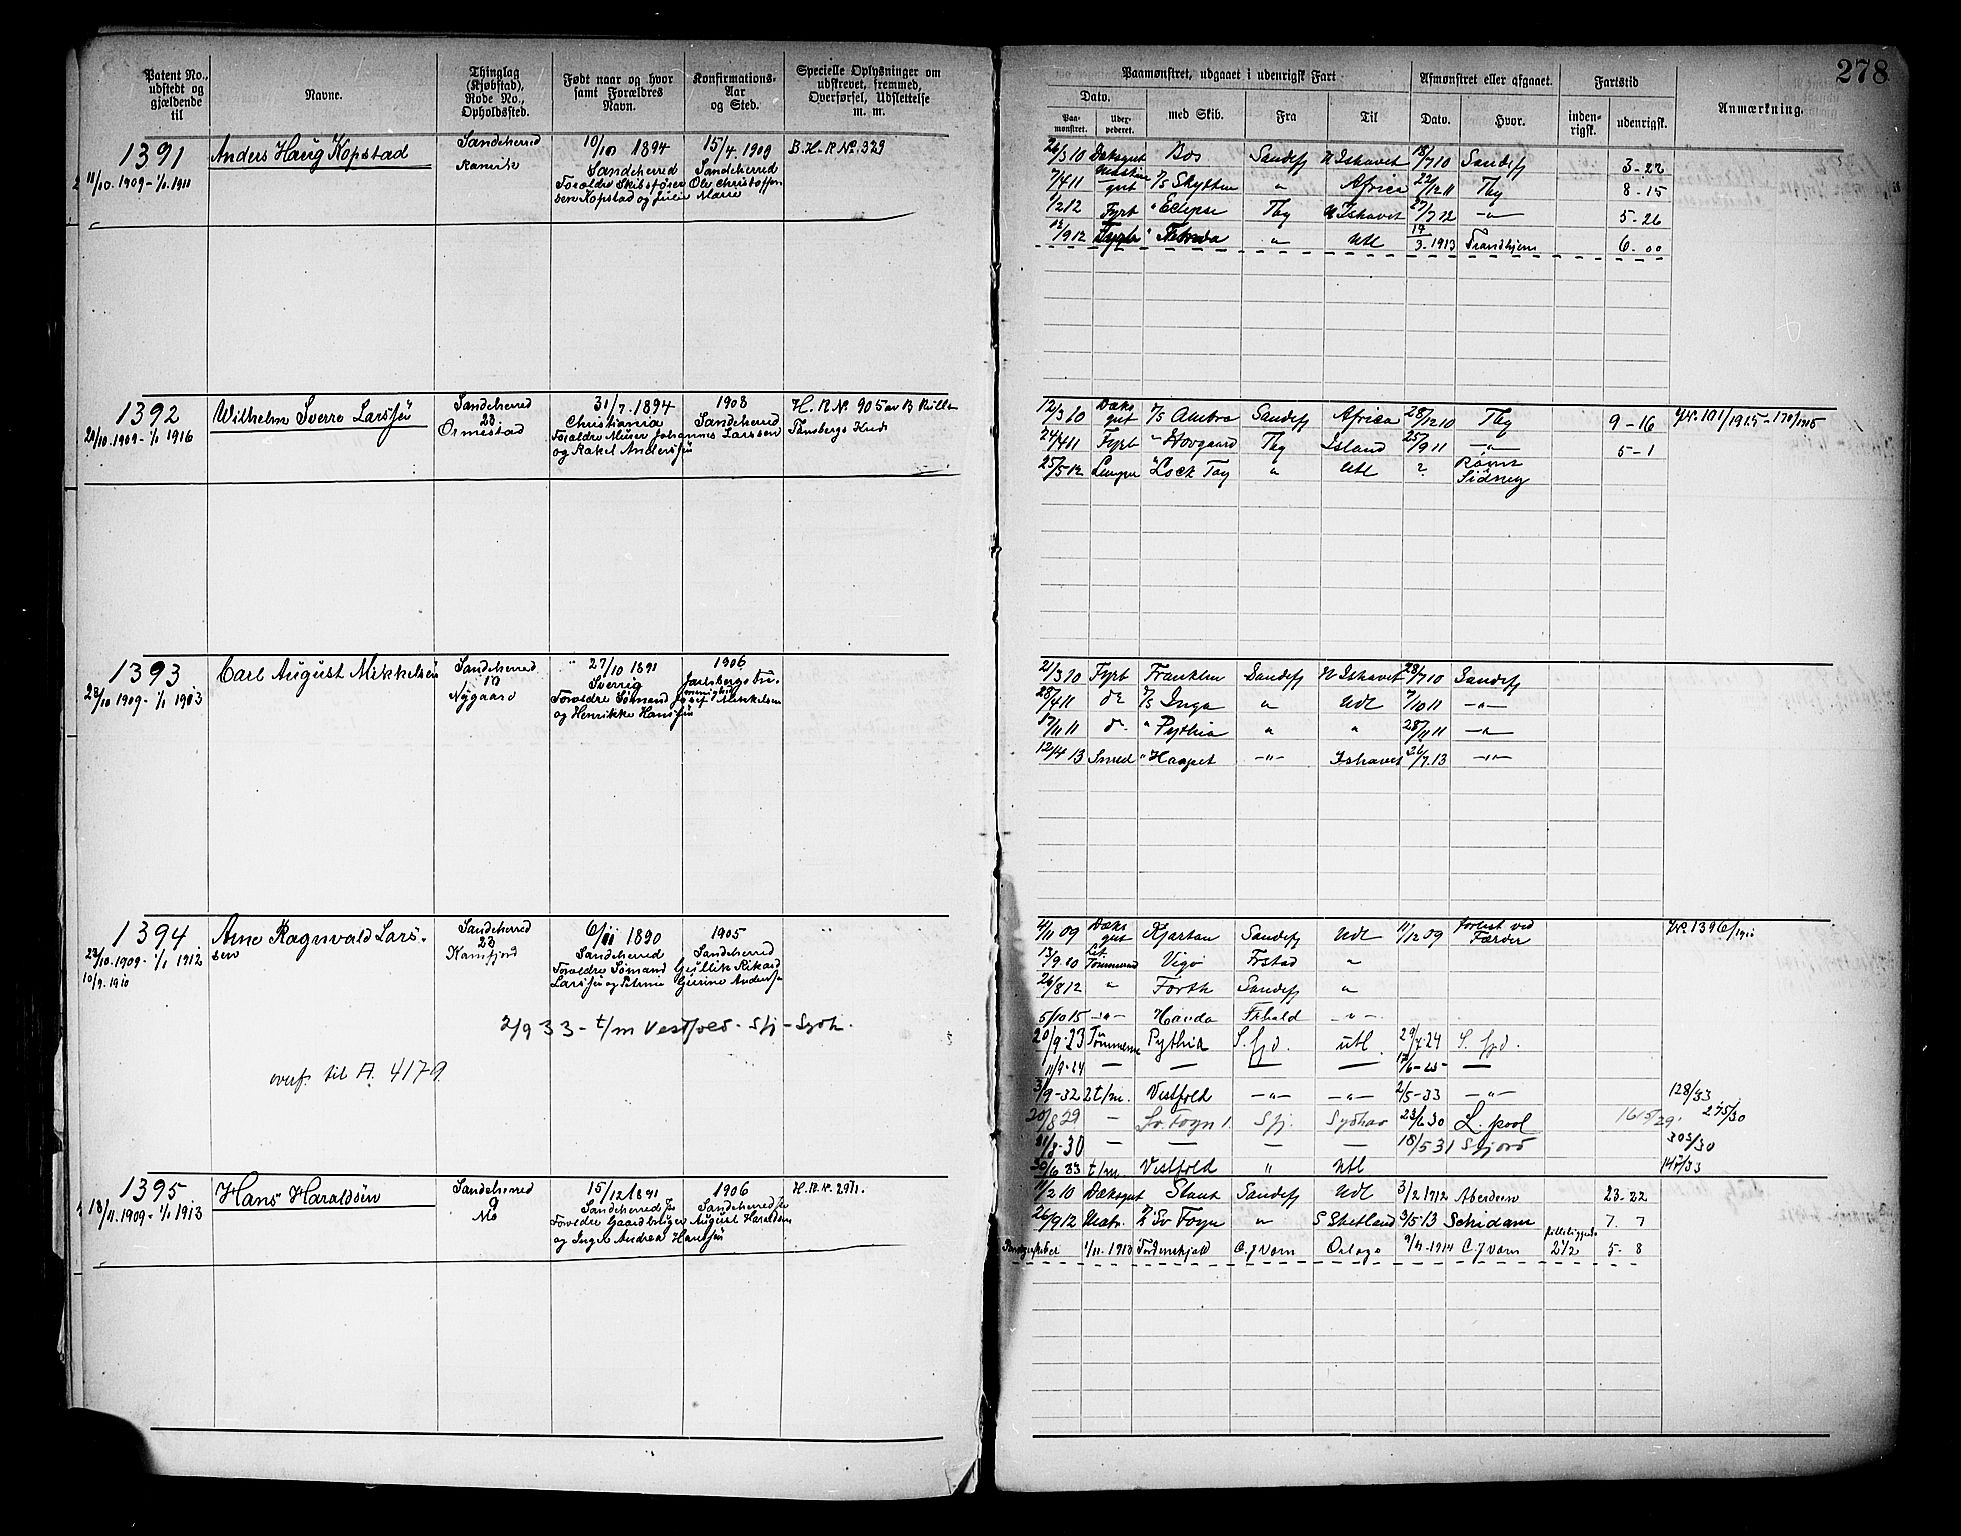 278
Patent No., udstedt og gjældende til
Navne.
Thinglag (Kjøbstad), Rode No., Opholdssted.
Født naar og hvor samt Forældres Navn.
Konfirmations-Aar og Sted.
Specielle Oplysninger om udstrevet, fremmed, Overførsel, Udslettelse m. m.
Paamønstret, udgaaet i udenrigsk Fart
Afmønstret eller afgaaet.
Fartstid
Anmærkning.
Dato.
med Skib.
Fra
Til
Dato.
Hvor.
inden-rigsk.
udenrigsk.
Paa-mønstret.
1391
Anders Haug Kopstad
Sandeherred
10/10 1894
15/4. 1909
B.H.R. No. 329
11/10. 1909 - 1/1. 1911
Sandeherred
Sandeherred
Forældre Skibsfører Ole Christoffer-
sen Kopstad og Julie Marie
26/3 10 Dæksgut Bos Sandefj N Ishavet 18/7 10 Sandefj 3 - 22
7/4 11 gut Skytten " Africa 22/12 11 Tbg 8 - 15
1/2 12 Fyrb " Eclipse Tbg N Ishavet 27/7 12 -"- 5 - 26
12/9 12 " Utl 3. 1913 Trondhjem 6. 00
1392
Wilhelm Sverre Larssen
Sandeherred
23
Ormestad
31/7. 1894
1908
H. R No. 905
Christiania
Sandeherred
Tønsberg Kreds
1909 - 1/1 1916
Forældre Murer Johannes Larssen
og Rakel Anderssen
12/3 10 Dæks gut Ambra Sandefj Africa 28/12 10 Tbg 9 - 16
24/4 11 Fyrb " Hovgaard Tbg Island 25/9 11 -"- 5 - 1
25/5 12 Lemper " Lock Tay " Utl ? Rømt Sidney
1393
Carl August Mikkelsen
Sandeherred
10
Nygaard
27/10 1891
1906
23/10 1909 - 1/1 1913
Sverrig
Jarlsbergs
Forældre Sømand Josef Mikkelsen
og Henrikke Hanssen
21/3 10 Fyrb Franklin Sandefj N Ishavet 28/7 10 Sandefj
28/4 11 do Inga " Udl 7/10 11 -"-
17/11 11 do " Pythia " " 28/11 11 -"-
12/4 13 Smed " Haapet -"- Ishavet 7.13 -"-
1394
Arne Ragnvald Lars-
sen
Sandeherred
23
Kamfjord
6/11 1890
1905
23/10. 1909 - 1/1 1912
10/9. 1910
Sandeherred
Sandeherred
Forældre Sømand Gullik Rikard
Larssen og Petrine Gurine Anderssen
2/9 33 - t/m Vestfold - Sfj - Sydh.
overf. til A. 4179
4/11 09 Dæks gut Kjartan Sandefj Udl 11/12 09 forlist ved Færder
13/9. 10 Tømmermd Vigo Frstad "
26/8 12 " Forth Sandefj "
5/10 15 -"- Handa Frhald -"-
20/9. 23 Tømmerm Pythia S. fjd. utl. 29/4 24 S. fjd.
11/9-24 — — — — 17/6-25 —
31/9-32 2 t/m. Vestfold -"- -"- 2/5-33 -"- 128/33
20/8 29 — Sv. Foyn 1. Sfj. Sydhav 23/6 30 L. pool 165/29 275/30
11/8-30 — — — — 18/5 31 Sfjord 303/30
30/6 33 t/m. Vestfold " Utl 145/33
1395
Hans Haraldsen
Sandeherred
9
Mo
15/12 1891
1906
H.R. No. 2911.
19/11. 1909 - 1/1 1913
Sandeherred
Sandeherred
Forældre Gaardbruger August Haraldsen
og Inger Andrea Hanssen
11/2 10 Dæksgut Staut Sandefj Udl 3/2 1912 Aberdeen 23. 22
26/9 12 Matr. Sv Foyn " S Shetland 3/5 13 Schidam 7. 7
1/11. 1913 1914 5. 8